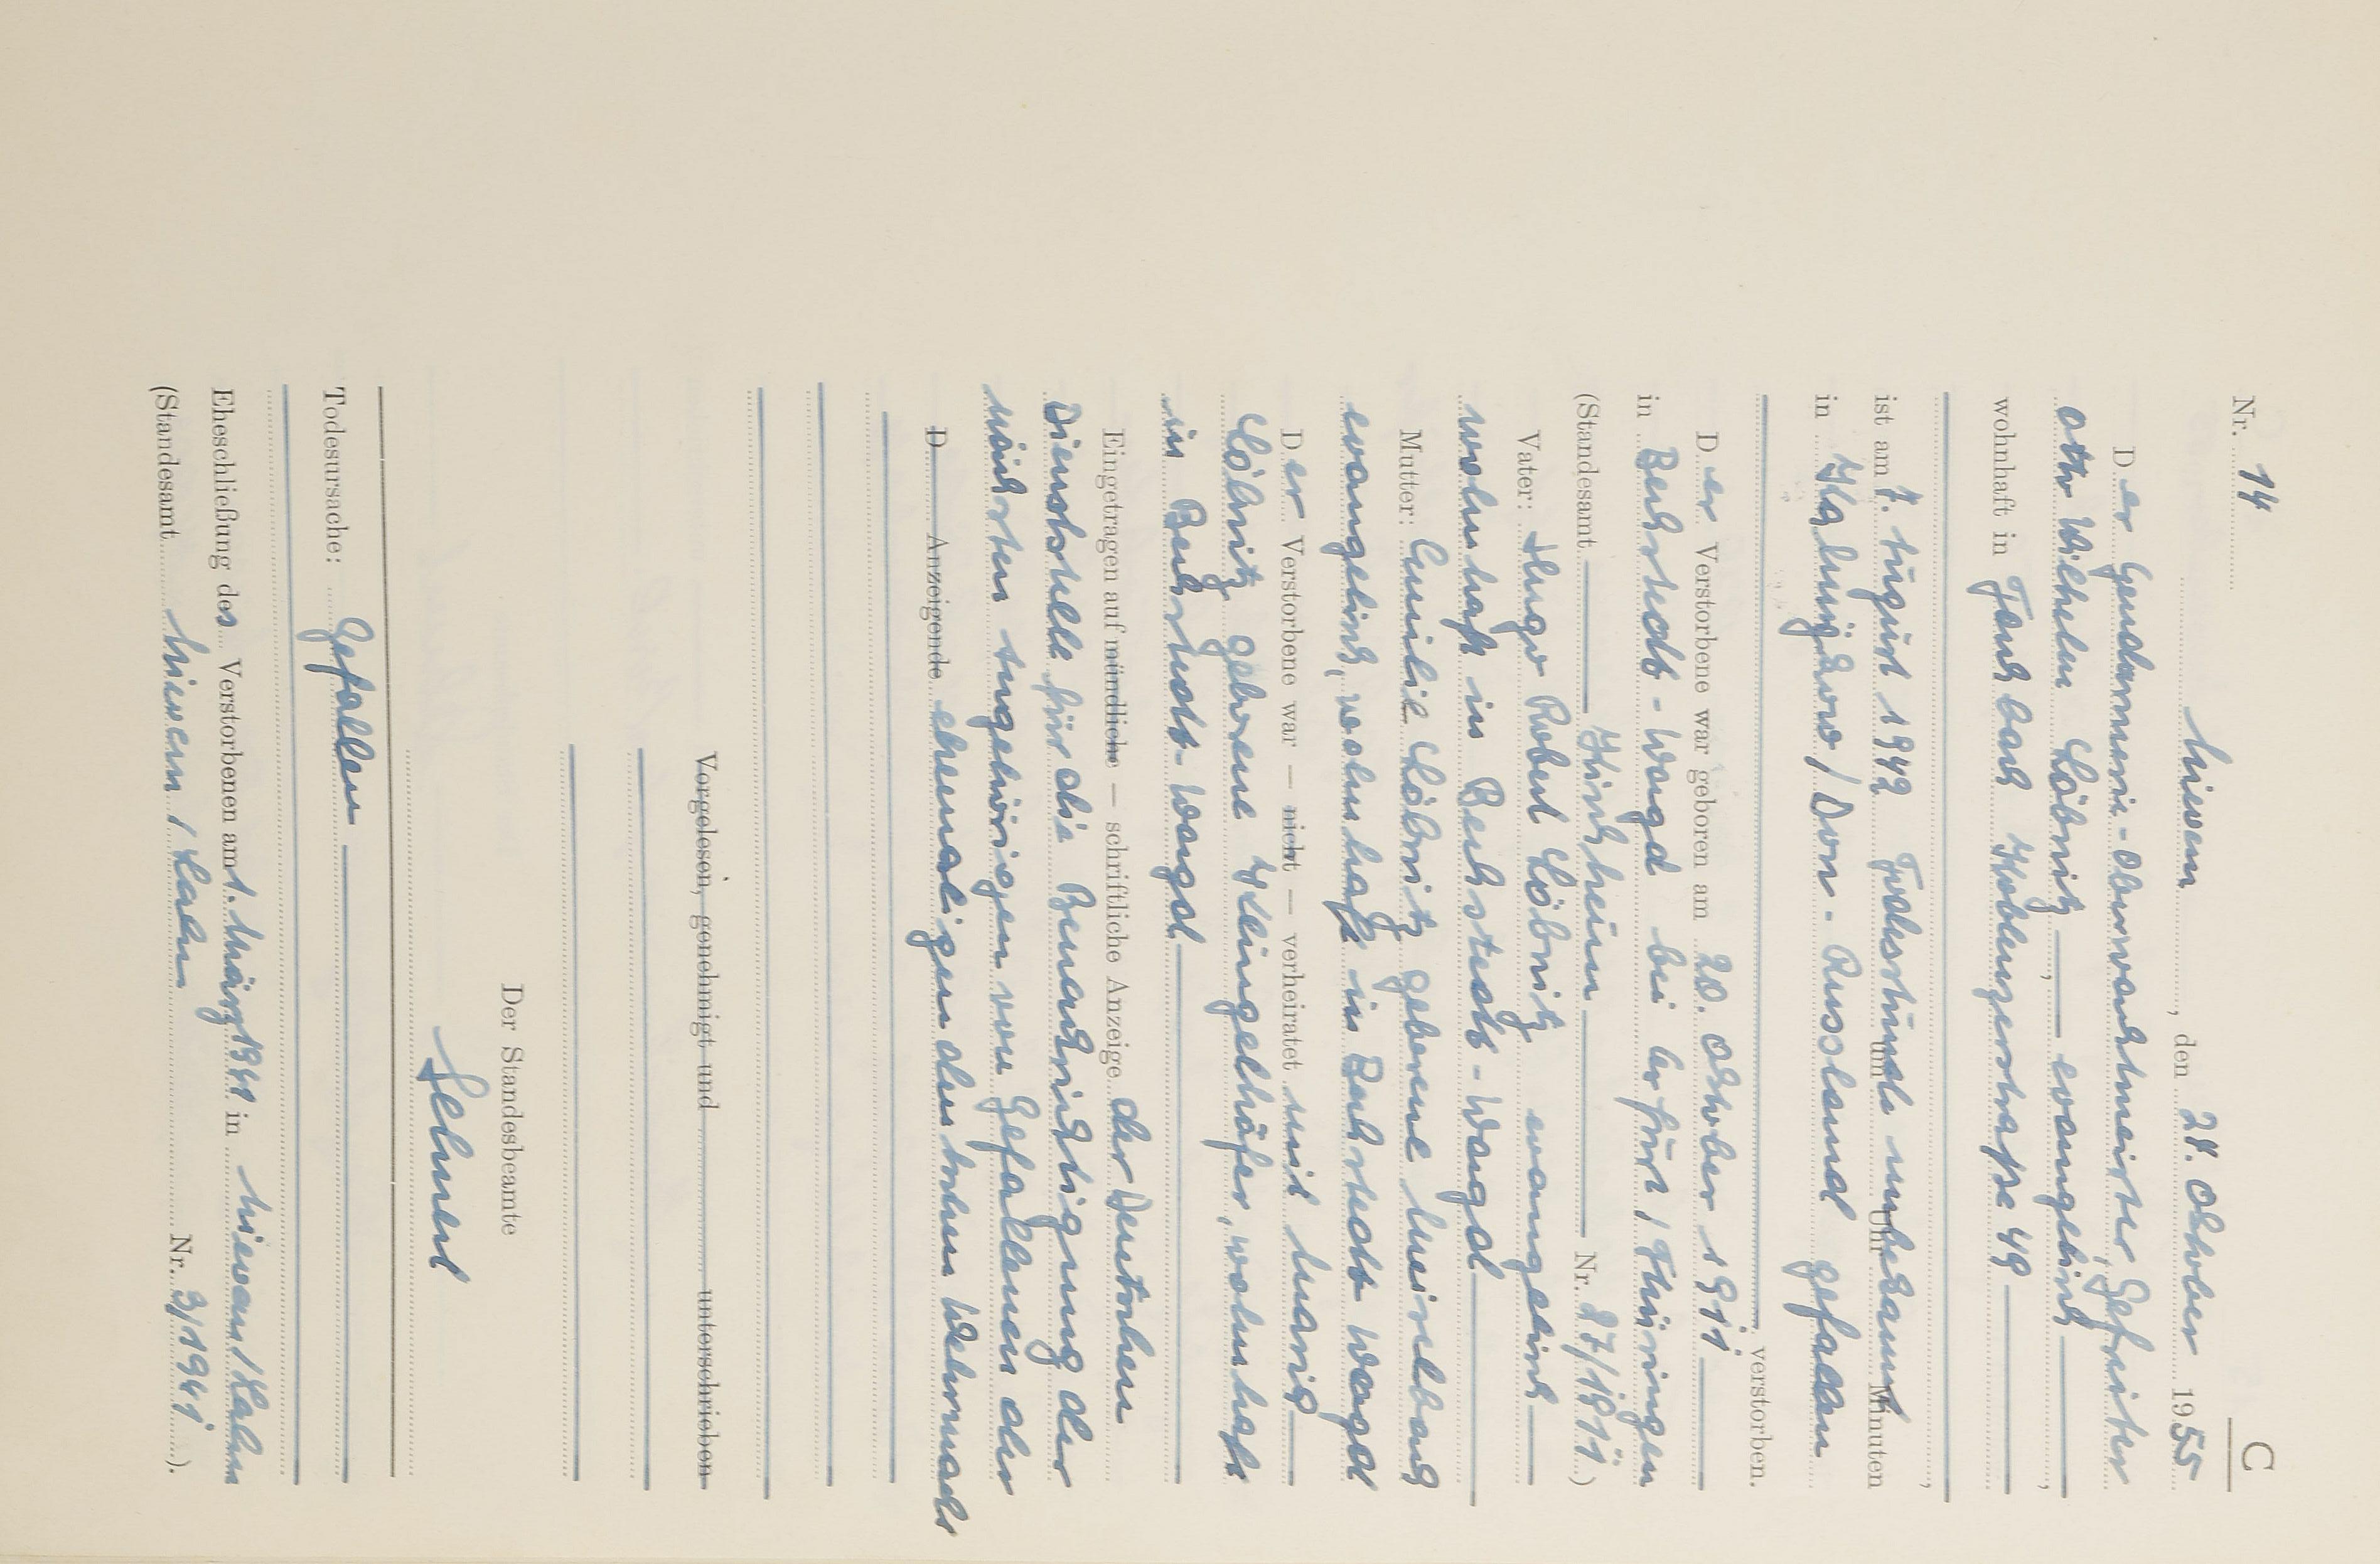 C
Nr. 14
Miesen, den 24. Oktober 1955
Der Gendarmerie-Oberwachtmeister, Gefreiter
Otto Wilhelm Löbnitz, evangelisch,
wohnhaft in Fachbach Koblenzerstraße 49,
ist am 7. August 1942 Todesstunde unbekannt um Uhr Minuten
in Kalmükow / Don - Russland gefallen
verstorben.
Der Verstorbene war geboren am 20. Oktober 1911
in Bechstedt-Wagd bei Erfurt / Thüringen
(Standesamt Kirchheim Nr. 27/1911)
Vater: Hugo Robert Löbnitz evangelisch
wohnhaft in Bechstedt-Wagd
Mutter: Emilie Löbnitz geborene
evangelisch, wohnhaft in Bechstedt Wagd
Der Verstorbene war — nicht — verheiratet mit
Löbnitz geborene Klingelhöfer, wohnhaft
in Bechstedt-Wagd
Eingetragen auf mündliche — schriftliche Anzeige der Deutschen
Dienststelle für die Benachrichtigung der
nächsten Angehörigen von Gefallenen der
D Anzeigende ehemaligen deutschen Wehrmacht
Vorgelesen, genehmigt und unterschrieben
Der Standesbeamte
Todesursache: Gefallen
Eheschließung des Verstorbenen am 1. März 1941 in / Lahn
(Standesamt / Lahn Nr. 3/1941).